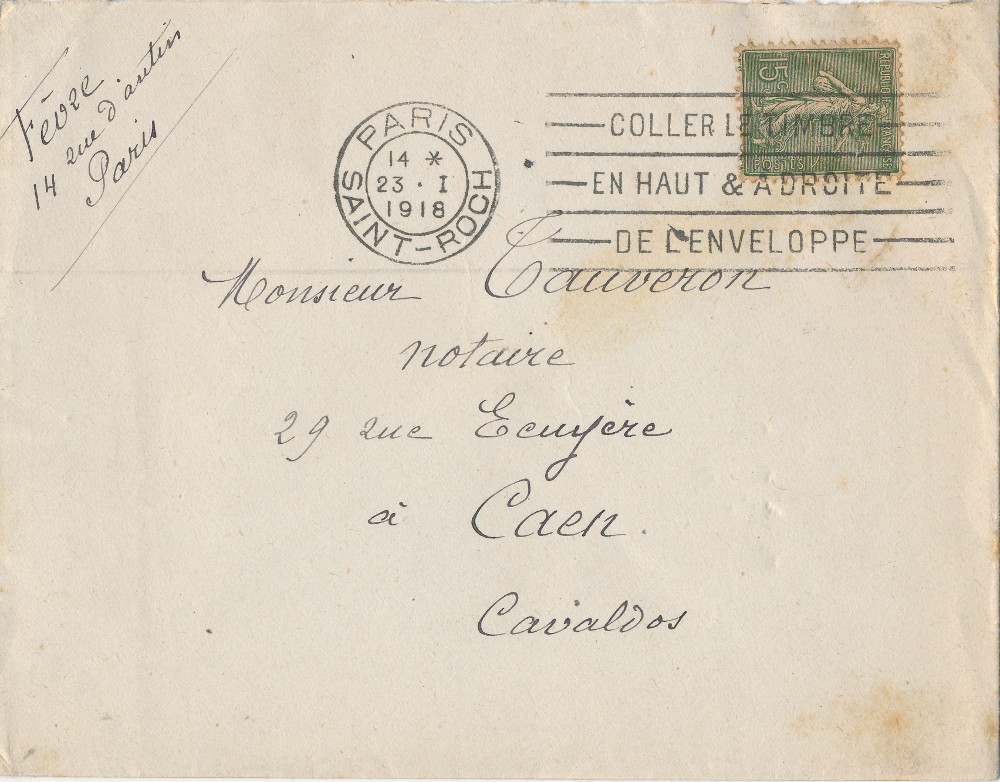 Fèvre
14 rue d'antin
Paris
PARIS
14 *
23 · I
1918
SAINT-ROCH
15c
RÉPUBLIQUE FRANÇAISE
POSTES
COLLER LE TIMBRE
EN HAUT & A DROITE
DE L'ENVELOPPE
Monsieur Tauveron
notaire
29 rue Ecuyère
à Caen.
Cavaldos